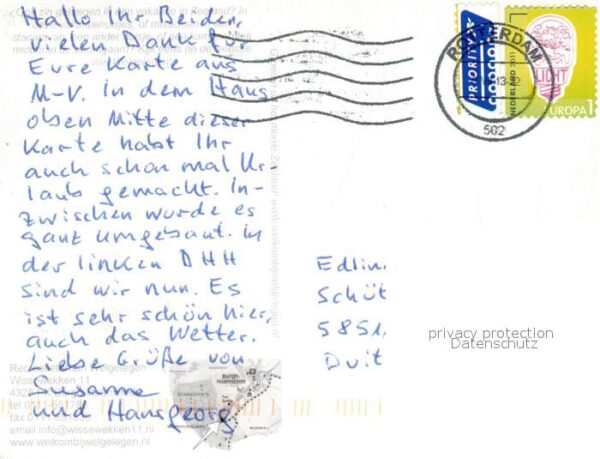 Hallo Ihr Beiden,
vielen Dank f.
Eure Karte aus
M-V. In dem Haus
oben Mitte dieser
Karte habt Ihr
auch schon mal Ur-
laub gemacht. In-
zwischen wurde es
ganz umgebaut. In
der linken DHH
sind wir nun. Es
ist sehr schön hier,
auch das Wetter.
Liebe Grüße von
Susanne
und Hansgeorg
Welgelegen
Wissewekken 11
4328
tel
fax
email info@wissewekken11.nl
www.welkombijwelgelegen.nl
Burgh
Haamstede
PRIORITY
ROTTERDAM
502
NEDERLAND 2011
LICHT
EUROPA 1
Edlin
Schüt
5851
Duit
privacy protection
Datenschutz